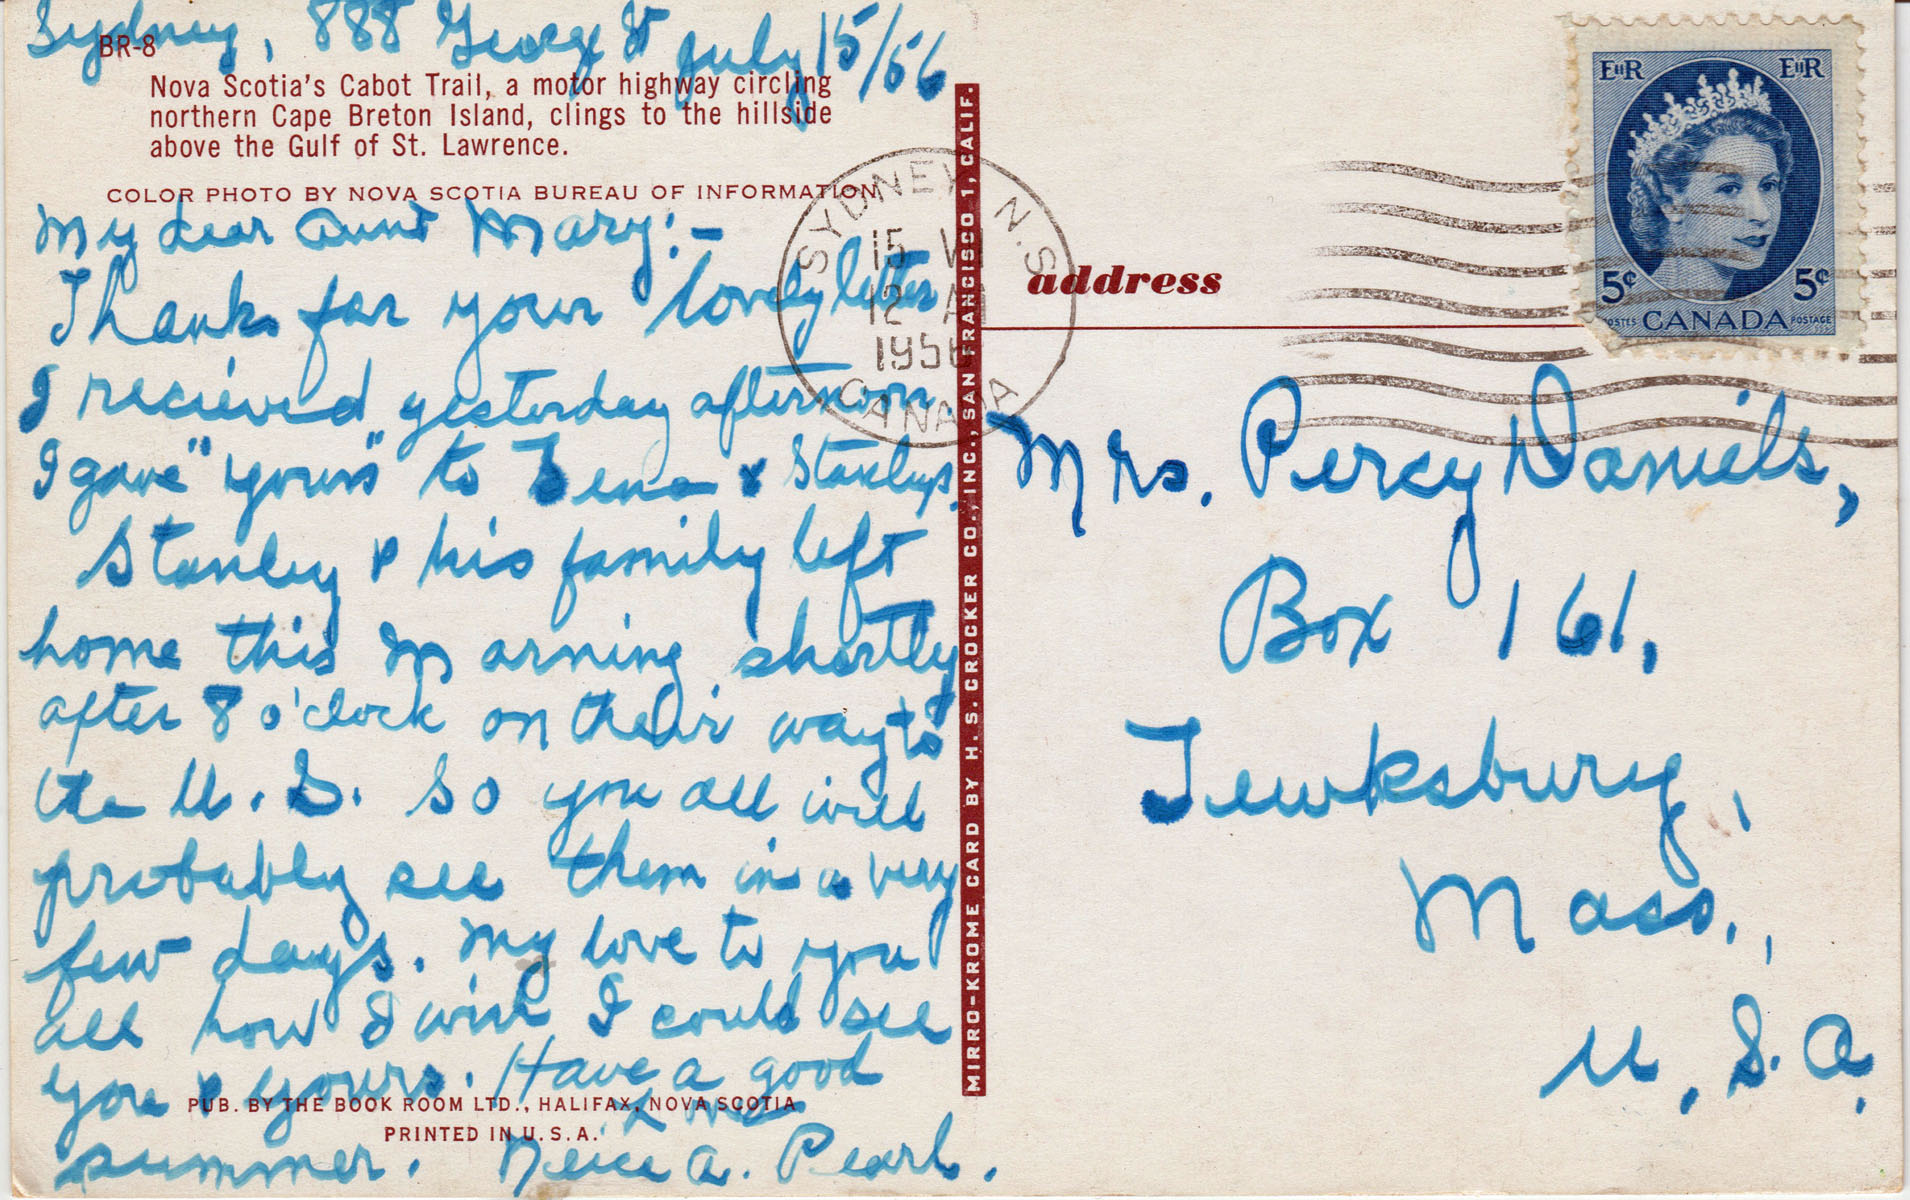 Sydney, 888 George St July 15/56
BR-8
Nova Scotia's Cabot Trail, a motor highway circling
northern Cape Breton Island, clings to the hillside
above the Gulf of St. Lawrence.
COLOR PHOTO BY NOVA SCOTIA BUREAU OF INFORMATION
My dear Aunt Mary:-
Thanks for your lovely letter
I recieved yesterday afternoon.
I gave "yours" to Lena & Stanleys.
Stanley & his family left
home this morning shortly
after 8 o'clock on their way to
the U.S. So you all will
probably see them in a very
few days. My love to you
all how I wish I could see
you & yours. Have a good
summer. Love
Neice A. Pearl.
PUB. BY THE BOOK ROOM LTD., HALIFAX, NOVA SCOTIA
PRINTED IN U.S.A.
MIRRO-KROME CARD BY H. S. CROCKER CO., INC., SAN FRANCISCO 1, CALIF.
SYDNEY N.S.
15 VII
12 AM
1956
CANADA
address
EIIR EIIR
5¢ 5¢
POSTES CANADA POSTAGE
Mrs. Percy Daniels,
Box 161,
Tewksbury,
Mass.,
U.S.A.